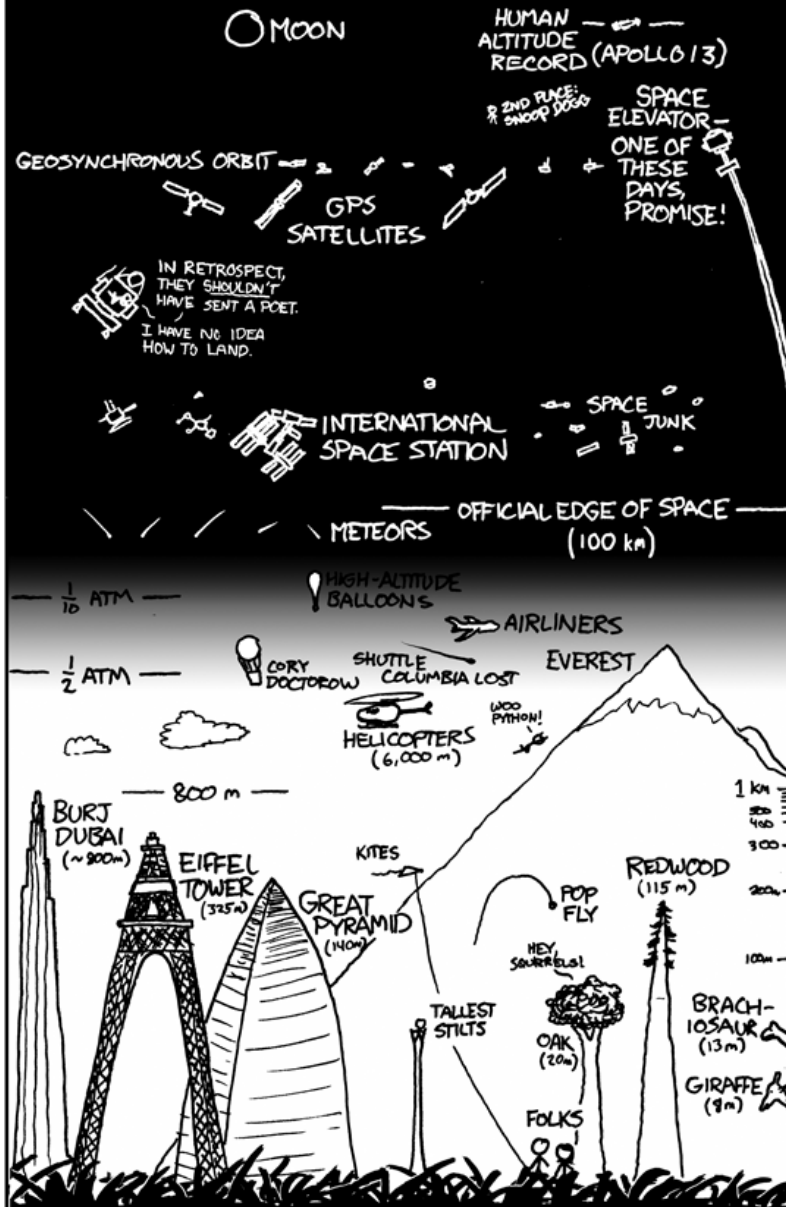 MOON
HUMAN
ALTITUDE
RECORD (APOLLO 13)
2ND PLACE:
SNOOP DOGG
SPACE
ELEVATOR—
ONE OF
THESE
DAYS,
PROMISE!
GEOSYNCHRONOUS ORBIT
GPS
SATELLITES
IN RETROSPECT,
THEY SHOULDN'T
HAVE SENT A POET.
I HAVE NO IDEA
HOW TO LAND.
INTERNATIONAL
SPACE STATION
SPACE
JUNK
OFFICIAL EDGE OF SPACE
(100 km)
METEORS
1/10 ATM
HIGH-ALTITUDE
BALLOONS
AIRLINERS
1/2 ATM
CORY
DOCTOROW
SHUTTLE
COLUMBIA LOST
EVEREST
WOO
PYTHON!
HELICOPTERS
(6,000 m)
800 m
1 KM
500
400
300
200m
100m
BURJ
DUBAI
(~800m)
EIFFEL
TOWER
(325m)
GREAT
PYRAMID
(140m)
KITES
POP
FLY
REDWOOD
(115 m)
HEY,
SQUIRRELS!
TALLEST
STILTS
OAK
(20m)
BRACH-
IOSAUR
(13m)
GIRAFFE
(8m)
FOLKS